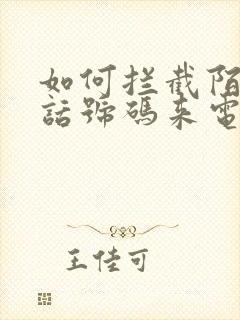 如何拦截陌
話號碼来電
王佳可